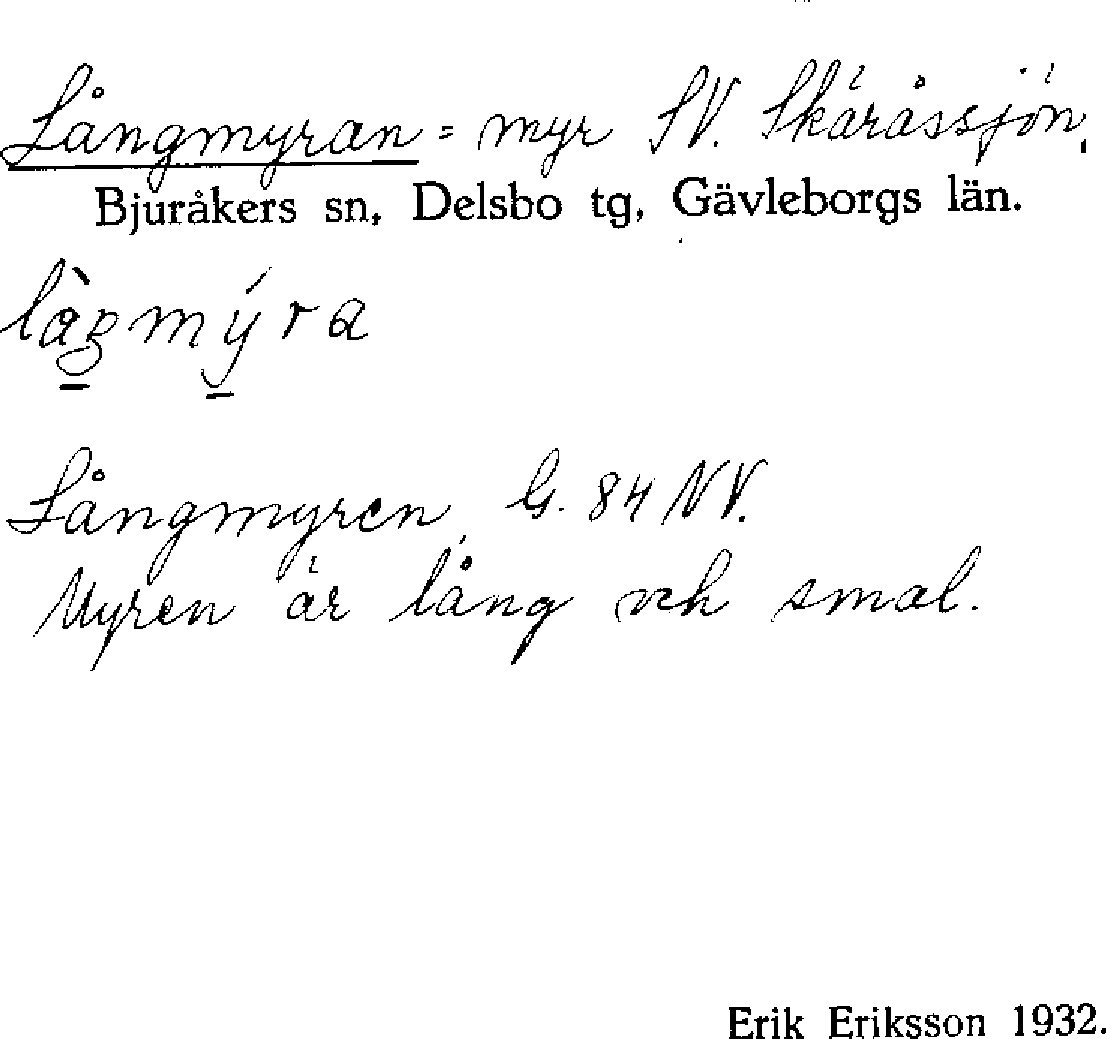 Långmyran = myr SV. Skäråssjön.
Bjuråkers sn, Delsbo tg, Gävleborgs län.
lågmýra
Långmyren, G. 84 NV.
Myren är lång och smal.
Erik Eriksson 1932.